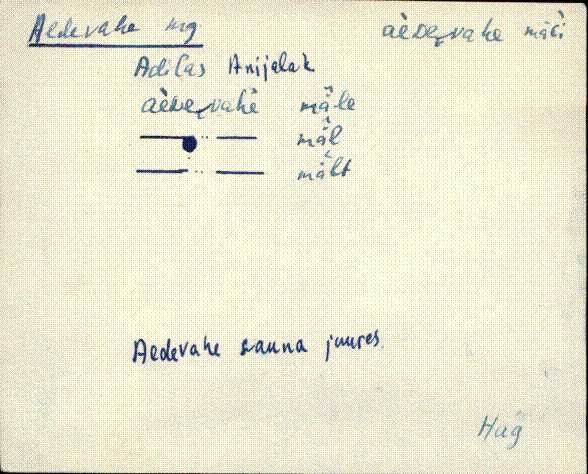 Aedevahe mg àeᴅevahe mäɢi
Adilas Anijalak
àeᴅevahè mä̀le
— " — mä̀l
— " — mä̀lt
Aedevahe sauna juures.
Hag